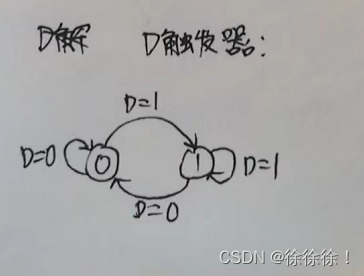 D解 D触发器:
D=1
D=0 0 1 D=1
D=0
CSDN @徐徐徐!